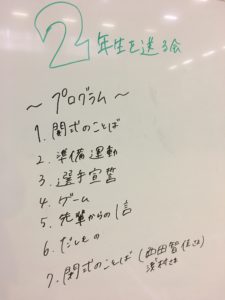 2年生を送る会
～プログラム～
1. 開式のことば
2. 準備運動
3. 選手宣誓
4. ゲーム
5. 先輩からの1言
6. だしもの
7. 閉式のことば